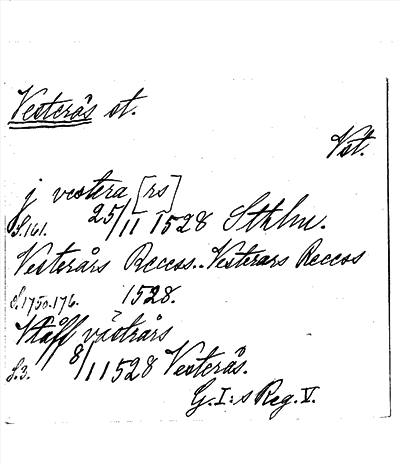 Vesterås st.
Vst.
j vestera [rs]
S.161. 25/11 1528 Sthlm.
Vesterårs Recces.. Vesterars Recces
S.175 o. 176. 1528.
Wtåff västrårs
S.3. 8/1 1528 Vesterås.
G.I:s Reg. V.